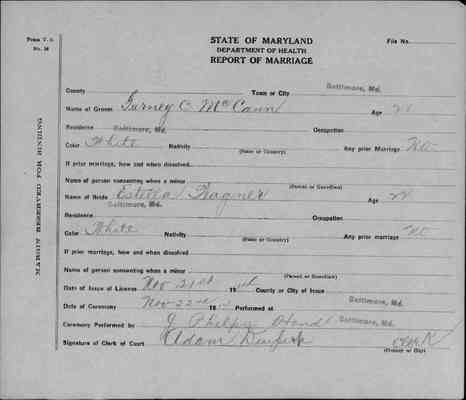 Form V. S.
No. 36
STATE OF MARYLAND
DEPARTMENT OF HEALTH
REPORT OF MARRIAGE
File No.
MARGIN RESERVED FOR BINDING
County Town or City Baltimore, Md.
Name of Groom Gurney C. McCann Age
Residence Baltimore, Md. Occupation
Color White Nativity Any prior Marriage No
(State or Country)
If prior marriage, how and when dissolved
Name of person consenting when a minor
(Parent or Guardian)
Name of Bride Estella Wagner Age
Residence Baltimore, Md. Occupation
Color White Nativity Any prior marriage No
(State or Country)
If prior marriage, how and when dissolved
Name of person consenting when a minor
(Parent or Guardian)
Date of Issue of License Nov 21st 19 County or City of Issue
Date of Ceremony Nov 22nd 19 Performed at Baltimore, Md.
Ceremony Performed by J. Phelps Hand Baltimore, Md.
Signature of Clerk of Court Adam Clerk
(County or City)